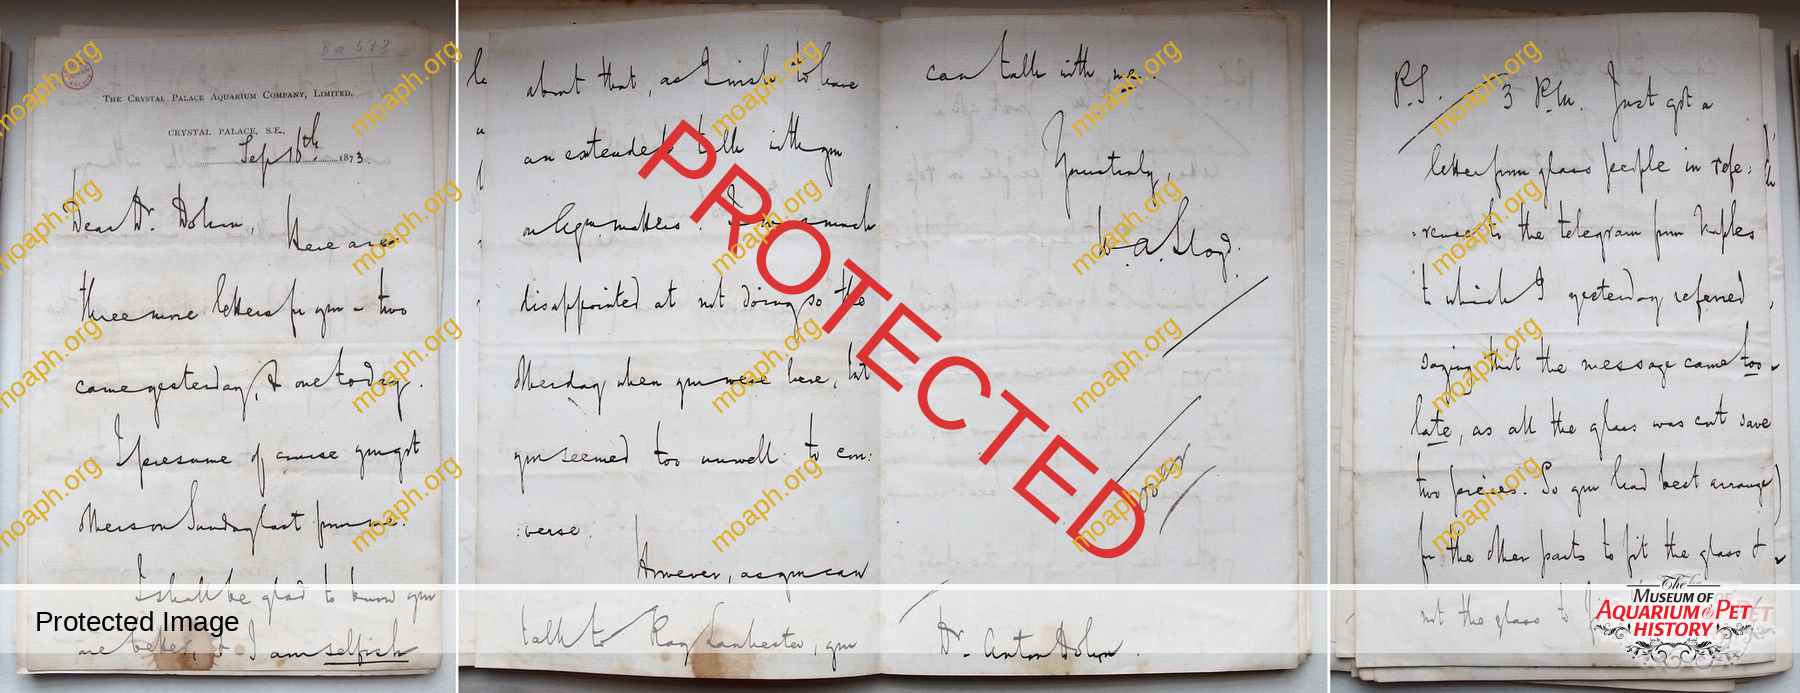 Ba 582
THE CRYSTAL PALACE AQUARIUM COMPANY, LIMITED,
CRYSTAL PALACE, S.E.,
Sep 16th 1873.
Dear Dr. Dohrn,
Here are
three more letters for you – two
came yesterday, & one today.
I presume of course you got
others on Sunday last from me.
I shall be glad to know you
are better, & I am selfish
about that, as I wish to have
an extended talk with you
on legm. matters. I was much
disappointed at not doing so the
other day when you were here, but
you seemed too unwell to con:
:verse.
However, as you can
talk to Ray Lankester, you
can talk with me.
Yours truly,
W. A. Lloyd.
over
Dr. Anton Dohrn.
P.S. 3 P.M. Just got a
letter from glass people in refe:
:rence to the telegram from Naples
to which I yesterday referred,
saying that the message came too
late, as all the glass was cut save
two pieces. So you had best arrange
for the other parts to fit the glass &
not the glass to
PROTECTED
moaph.org
Protected Image
The
MUSEUM OF
AQUARIUM & PET
HISTORY